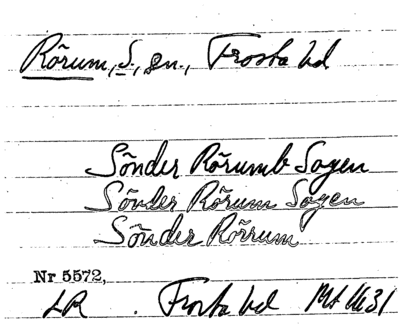 Rõrum, S., sn., Frosta hd
Sönder Rõrumb Sogen
Sönder Rõrum Sogen
Sönder Rõrrum
Nr 5572,
LR . Frosta hd Mt 1631